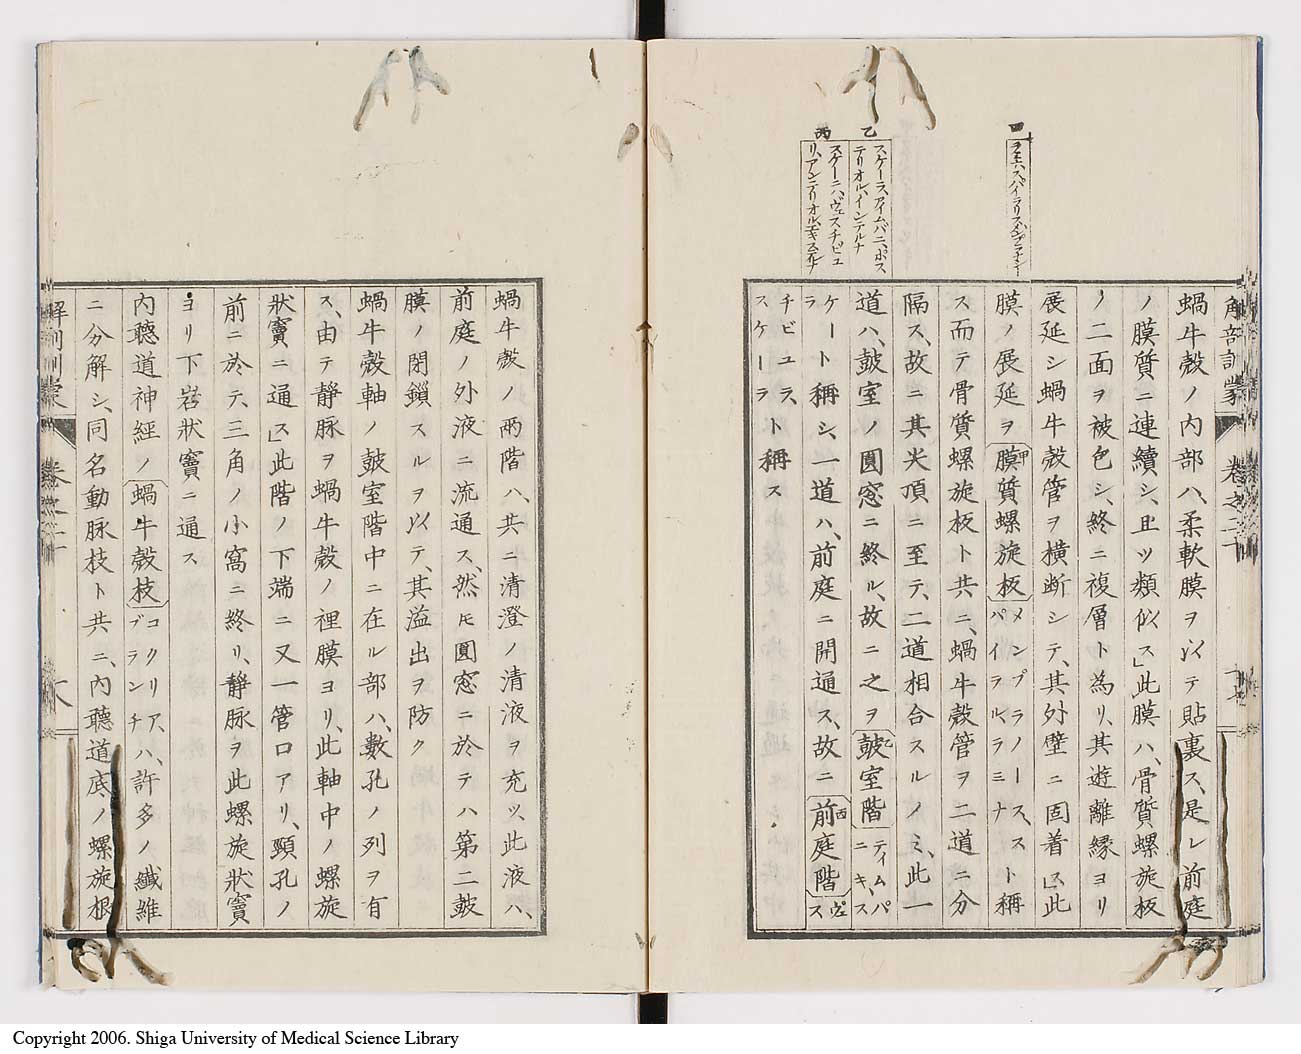 解剖訓蒙 卷之二十
蝸牛殼ノ内部ハ、柔軟膜ヲ以テ貼裏ス、是レ前庭
ノ膜質ニ連續シ、且ツ類似ス」此膜ハ、骨質螺旋板
ノ二面ヲ被包シ、終ニ複層ト為リ、其遊離縁ヨリ
展延シ蝸牛殼管ヲ横断シテ、其外壁ニ固着ス」此
膜ノ展延ヲ膜質螺旋板メンブラノース、スパイラル、ラミナト稱
ス而テ骨質螺旋板ト共ニ、蝸牛殼管ヲ二道ニ分
隔ス、故ニ其尖頂ニ至テ、二道相合スルノミ、此一
道ハ、皷室ノ圓窓ニ終ル、故ニ之ヲ皷室階ティムパニキ、スケーラ
ト稱シ、一道ハ、前庭ニ開通ス、故ニ前庭階ヴェスチビュラ、スケーラ
ト稱ス
乙
スケーラ、タイムパニ、ポス
テリオル、インテルナ
丙
スケーラ、ヴェスチビュ
リ、アンテリオル、エキステルナ
蝸牛殼ノ兩階ハ、共ニ清澄ノ清液ヲ充ツ、此液ハ、
前庭ノ外液ニ流通ス、然𪜈圓窓ニ於テハ第二皷
膜ノ閉鎖スルヲ以テ、其溢出ヲ防ク
蝸牛殼軸ノ皷室階中ニ在ル部ハ、數孔ノ列ヲ有
ス、由テ靜脉ヲ蝸牛殼ノ裡膜ヨリ、此軸中ノ螺旋
狀竇ニ通ス」此階ノ下端ニ又一管口アリ、頸孔ノ
前ニ於テ、三角ノ小窩ニ終リ、靜脉ヲ此螺旋狀竇
ヨリ下岩狀竇ニ通ス
内聽道神經ノ蝸牛殼枝コクリア、ブランチハ、許多ノ纎維
ニ分解シ、同名動脉枝ト共ニ、内聽道底ノ螺旋根
解剖訓蒙 卷之二十
Copyright 2006. Shiga University of Medical Science Library